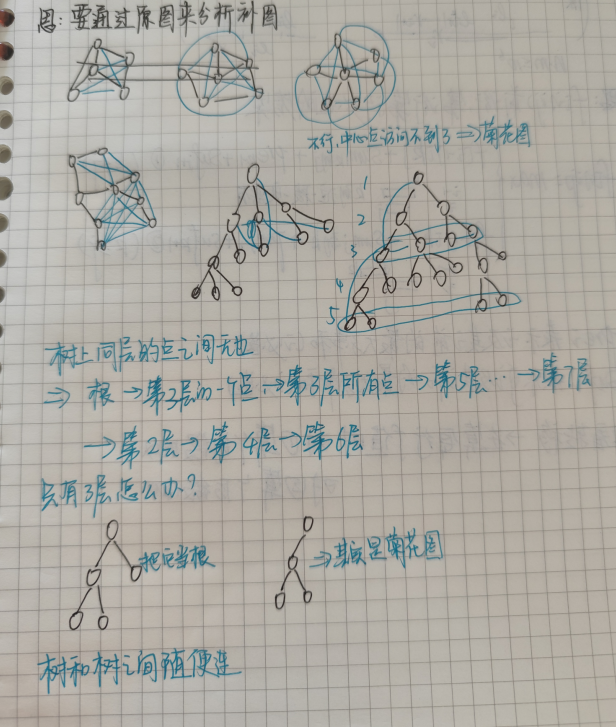 思：要通过原图来分析补图
不行，中心点访问不到了⇒菊花图
1
2
3
4
5
树上同层的点之间无边
⇒ 根→第3层的一个点→第3层所有点→第5层…→第7层
→第2层→第4层→第6层
只有3层怎么办？
把它当根
⇒其实是菊花图
树和树之间随便连